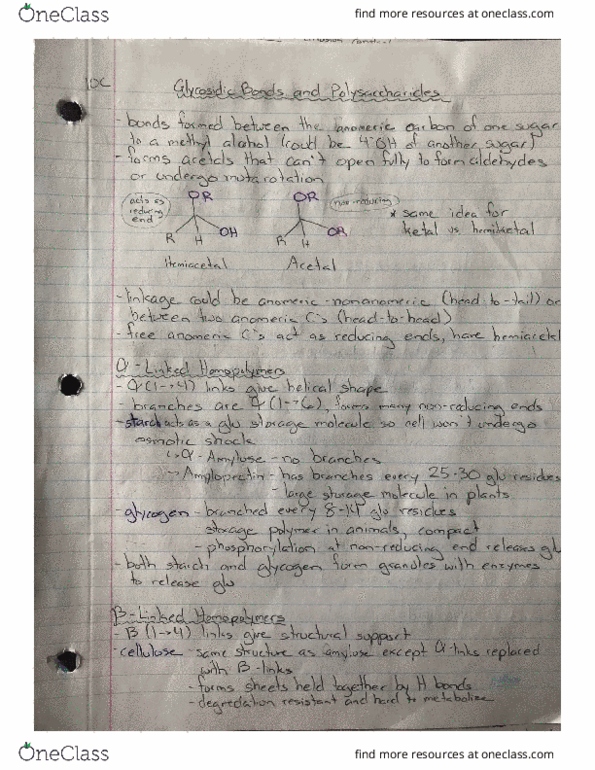 OneClass
find more resources at oneclass.com
10C
Glycosidic Bonds and Polysaccharides
- bonds formed between the anomeric carbon of one sugar
to a methyl alcohol (could be 4° OH of another sugar)
- forms acetals that can't open fully to form aldehydes
or undergo mutarotation
acts as reducing end
OR
R H OH
Hemiacetal
OR
non-reducing
R H OR
Acetal
* same idea for
ketal vs hemiketal
- linkage could be anomeric-nonanomeric (head-to-tail) or
between two anomeric C's (head-to-head)
- free anomeric C's act as reducing ends, have hemiacetal
α-Linked Homopolymers
- α(1→4) links give helical shape
- branches are α(1→6), forms many non-reducing ends
- starch acts as a glu storage molecule so cell won't undergo
osmotic shock
↳ α-Amylose - no branches
↳ Amylopectin - has branches every 25-30 glu residues
- large storage molecule in plants
- glycogen - branched every 8-14 glu residues
- storage polymer in animals, compact
- phosphorylation at non-reducing end releases glu
- both starch and glycogen form granules with enzymes
to release glu
β-Linked Homopolymers
- β(1→4) links give structural support
- cellulose - same structure as amylose except α links replaced
with β-links
- forms sheets held together by H bonds
- degredation resistant and hard to metabolize
OneClass
find more resources at oneclass.com